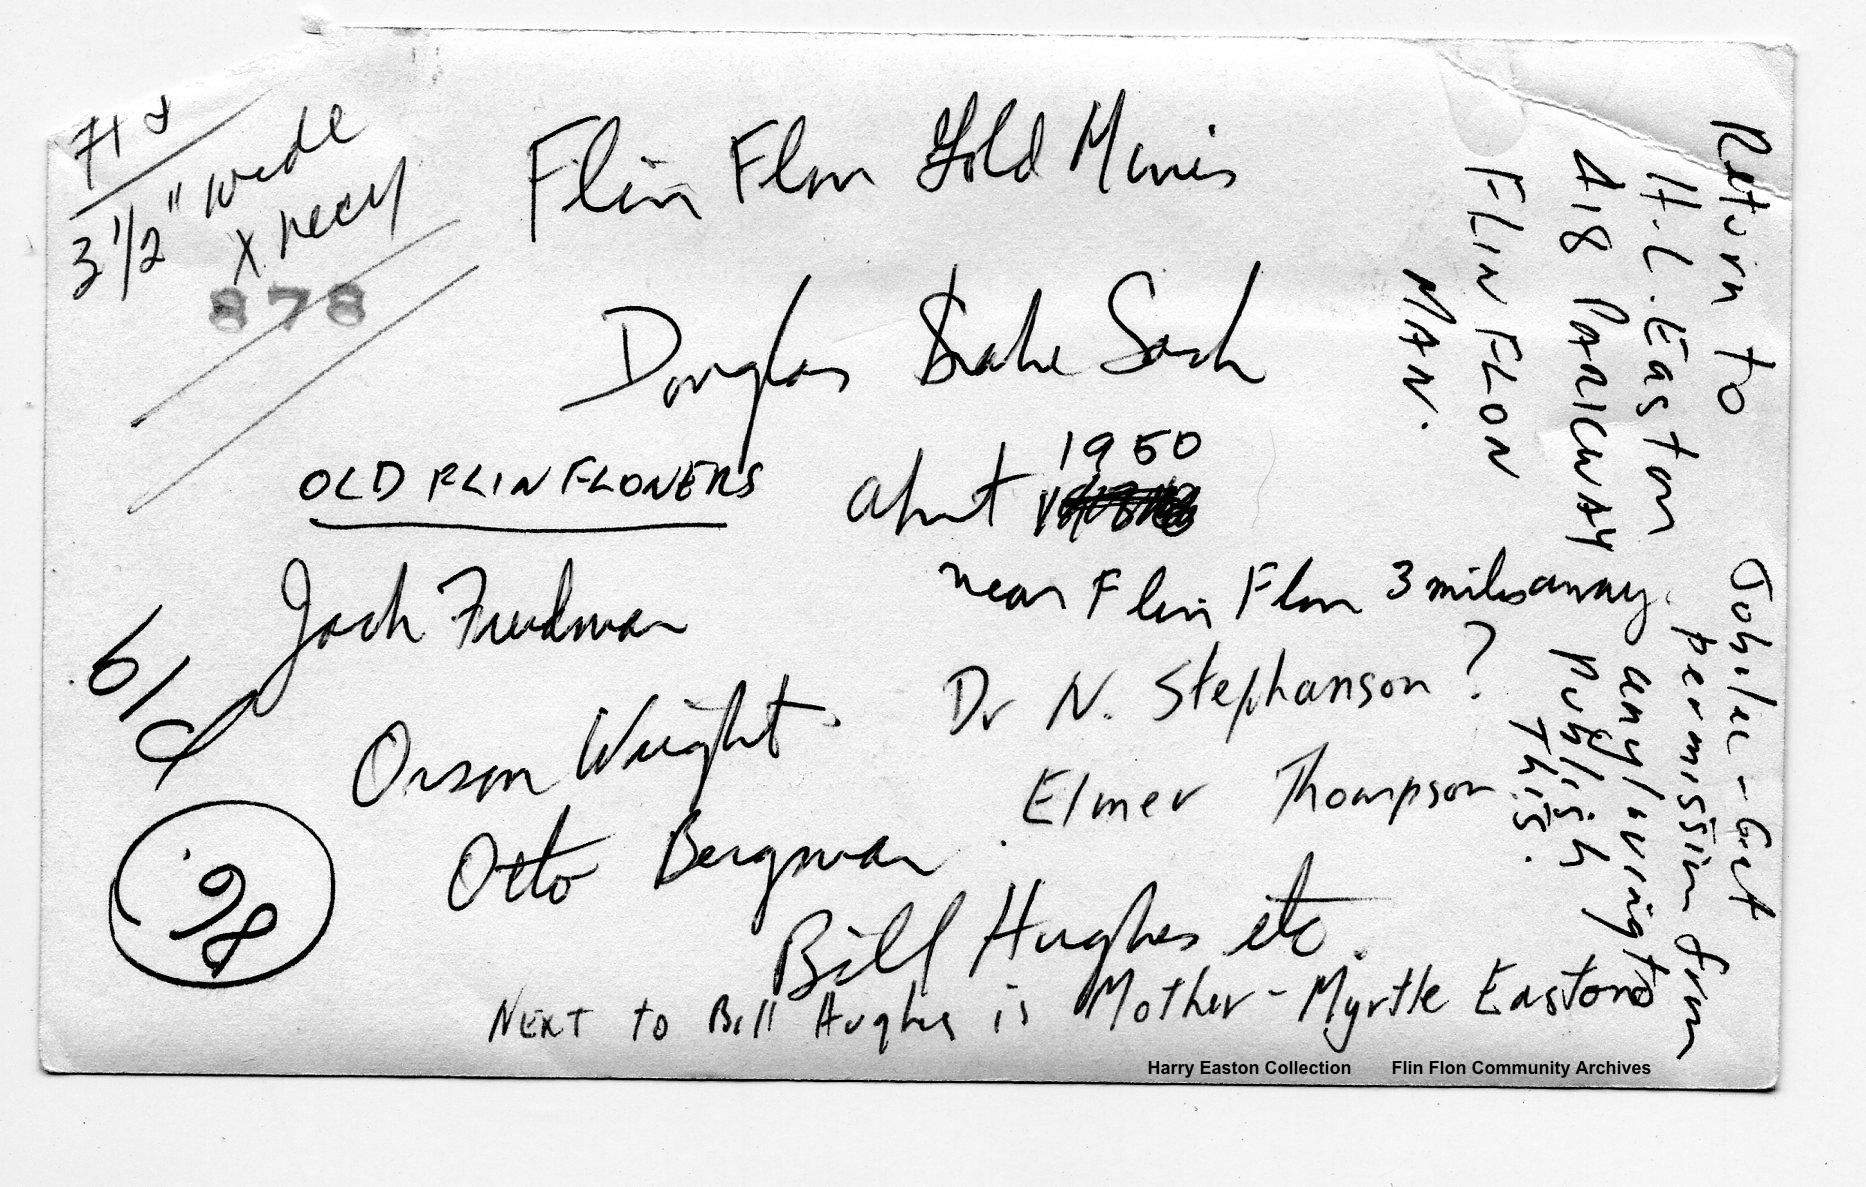 3 1/2" wide
x necy
878
Flin Flon Gold Mines
Douglas Drake Sach
OLD FLIN FLONERS
about 1950
near Flin Flon 3 miles away.
Jack Freedman
Dr N. Stephanson ?
Orson Wright
Elmer Thompson
Otto Bergman
Bill Hughes etc.
NEXT to Bill Hughes is Mother - Myrtle Easton
98
Return to
H.L. Easton
A18 PARKWAY
FLIN FLON
MAN.
Jobilee - Get
permission from
any living to
publish
This.
Harry Easton Collection Flin Flon Community Archives